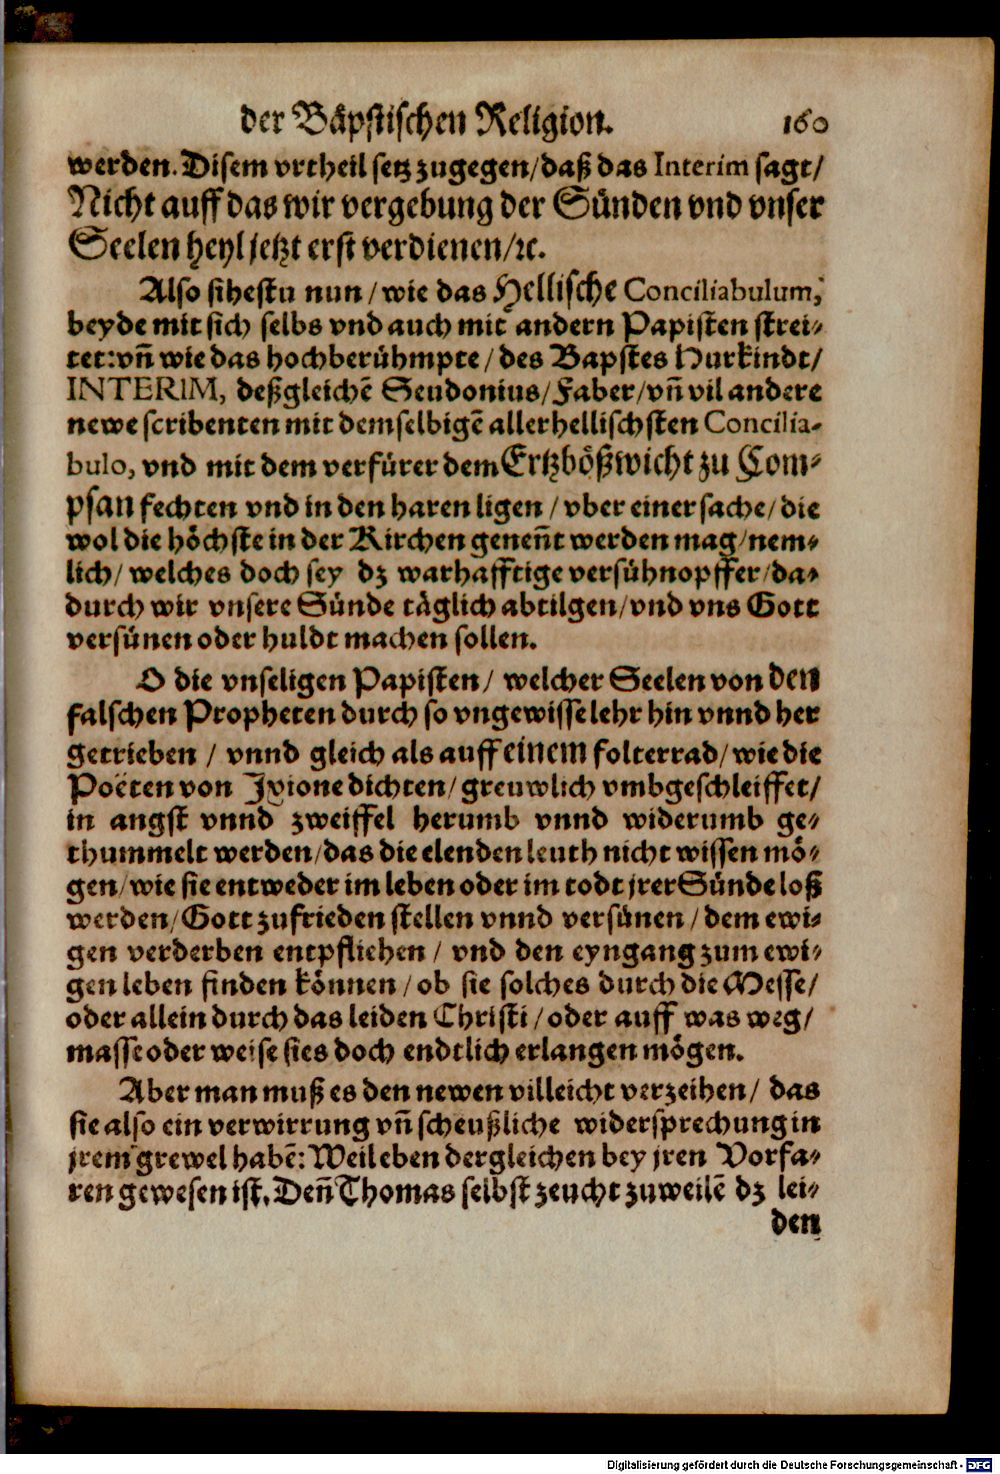 der Bäpstischen Religion. 160
werden. Disem vrtheil setz zugegen/daß das Interim sagt/
Nicht auff das wir vergebung der Sünden vnd vnser
Seelen heyl jetzt erst verdienen/ꝛc.
Also sihestu nun/wie das Hellische Conciliabulum,
beyde mit sich selbs vnd auch mit andern Papisten strei-
tet: vñ wie das hochberühmpte/des Bapstes Hurkindt/
INTERIM, deßgleichẽ Seudonius/Faber/vñ vil andere
newe scribenten mit demselbigẽ allerhellischsten Concilia-
bulo, vnd mit dem verfürer dem Ertzbößwicht zu Com-
psan fechten vnd in den haren ligen/vber einer sache/die
wol die höchste in der Kirchen geneñt werden mag/nem-
lich/welches doch sey dz warhafftige versühnopffer/da-
durch wir vnsere Sünde täglich abtilgen/vnd vns Gott
versünen oder huldt machen sollen.
O die vnseligen Papisten/welcher Seelen von den
falschen Propheten durch so vngewisse lehr hin vnnd her
getrieben/vnnd gleich als auff einem folterrad/wie die
Poëten von Jxione dichten/greuwlich vmbgeschleiffet/
in angst vnnd zweiffel herumb vnnd widerumb ge-
thummelt werden/das die elenden leuth nicht wissen mö-
gen/wie sie entweder im leben oder im todt jrer Sünde loß
werden/Gott zufrieden stellen vnnd versünen/dem ewi-
gen verderben entpfliehen/vnd den eyngang zum ewi-
gen leben finden können/ob sie solches durch die Messe/
oder allein durch das leiden Christi/oder auff was weg/
masse oder weise sies doch endtlich erlangen mögen.
Aber man muß es den newen villeicht verzeihen/das
sie also ein verwirrung vñ scheußliche widersprechung in
jrem grewel habẽ: Weil eben dergleichen bey jren Vorfa-
ren gewesen ist. Deñ Thomas selbst zeucht zuweilẽ dz lei-
den
Digitalisierung gefördert durch die Deutsche Forschungsgemeinschaft - DFG